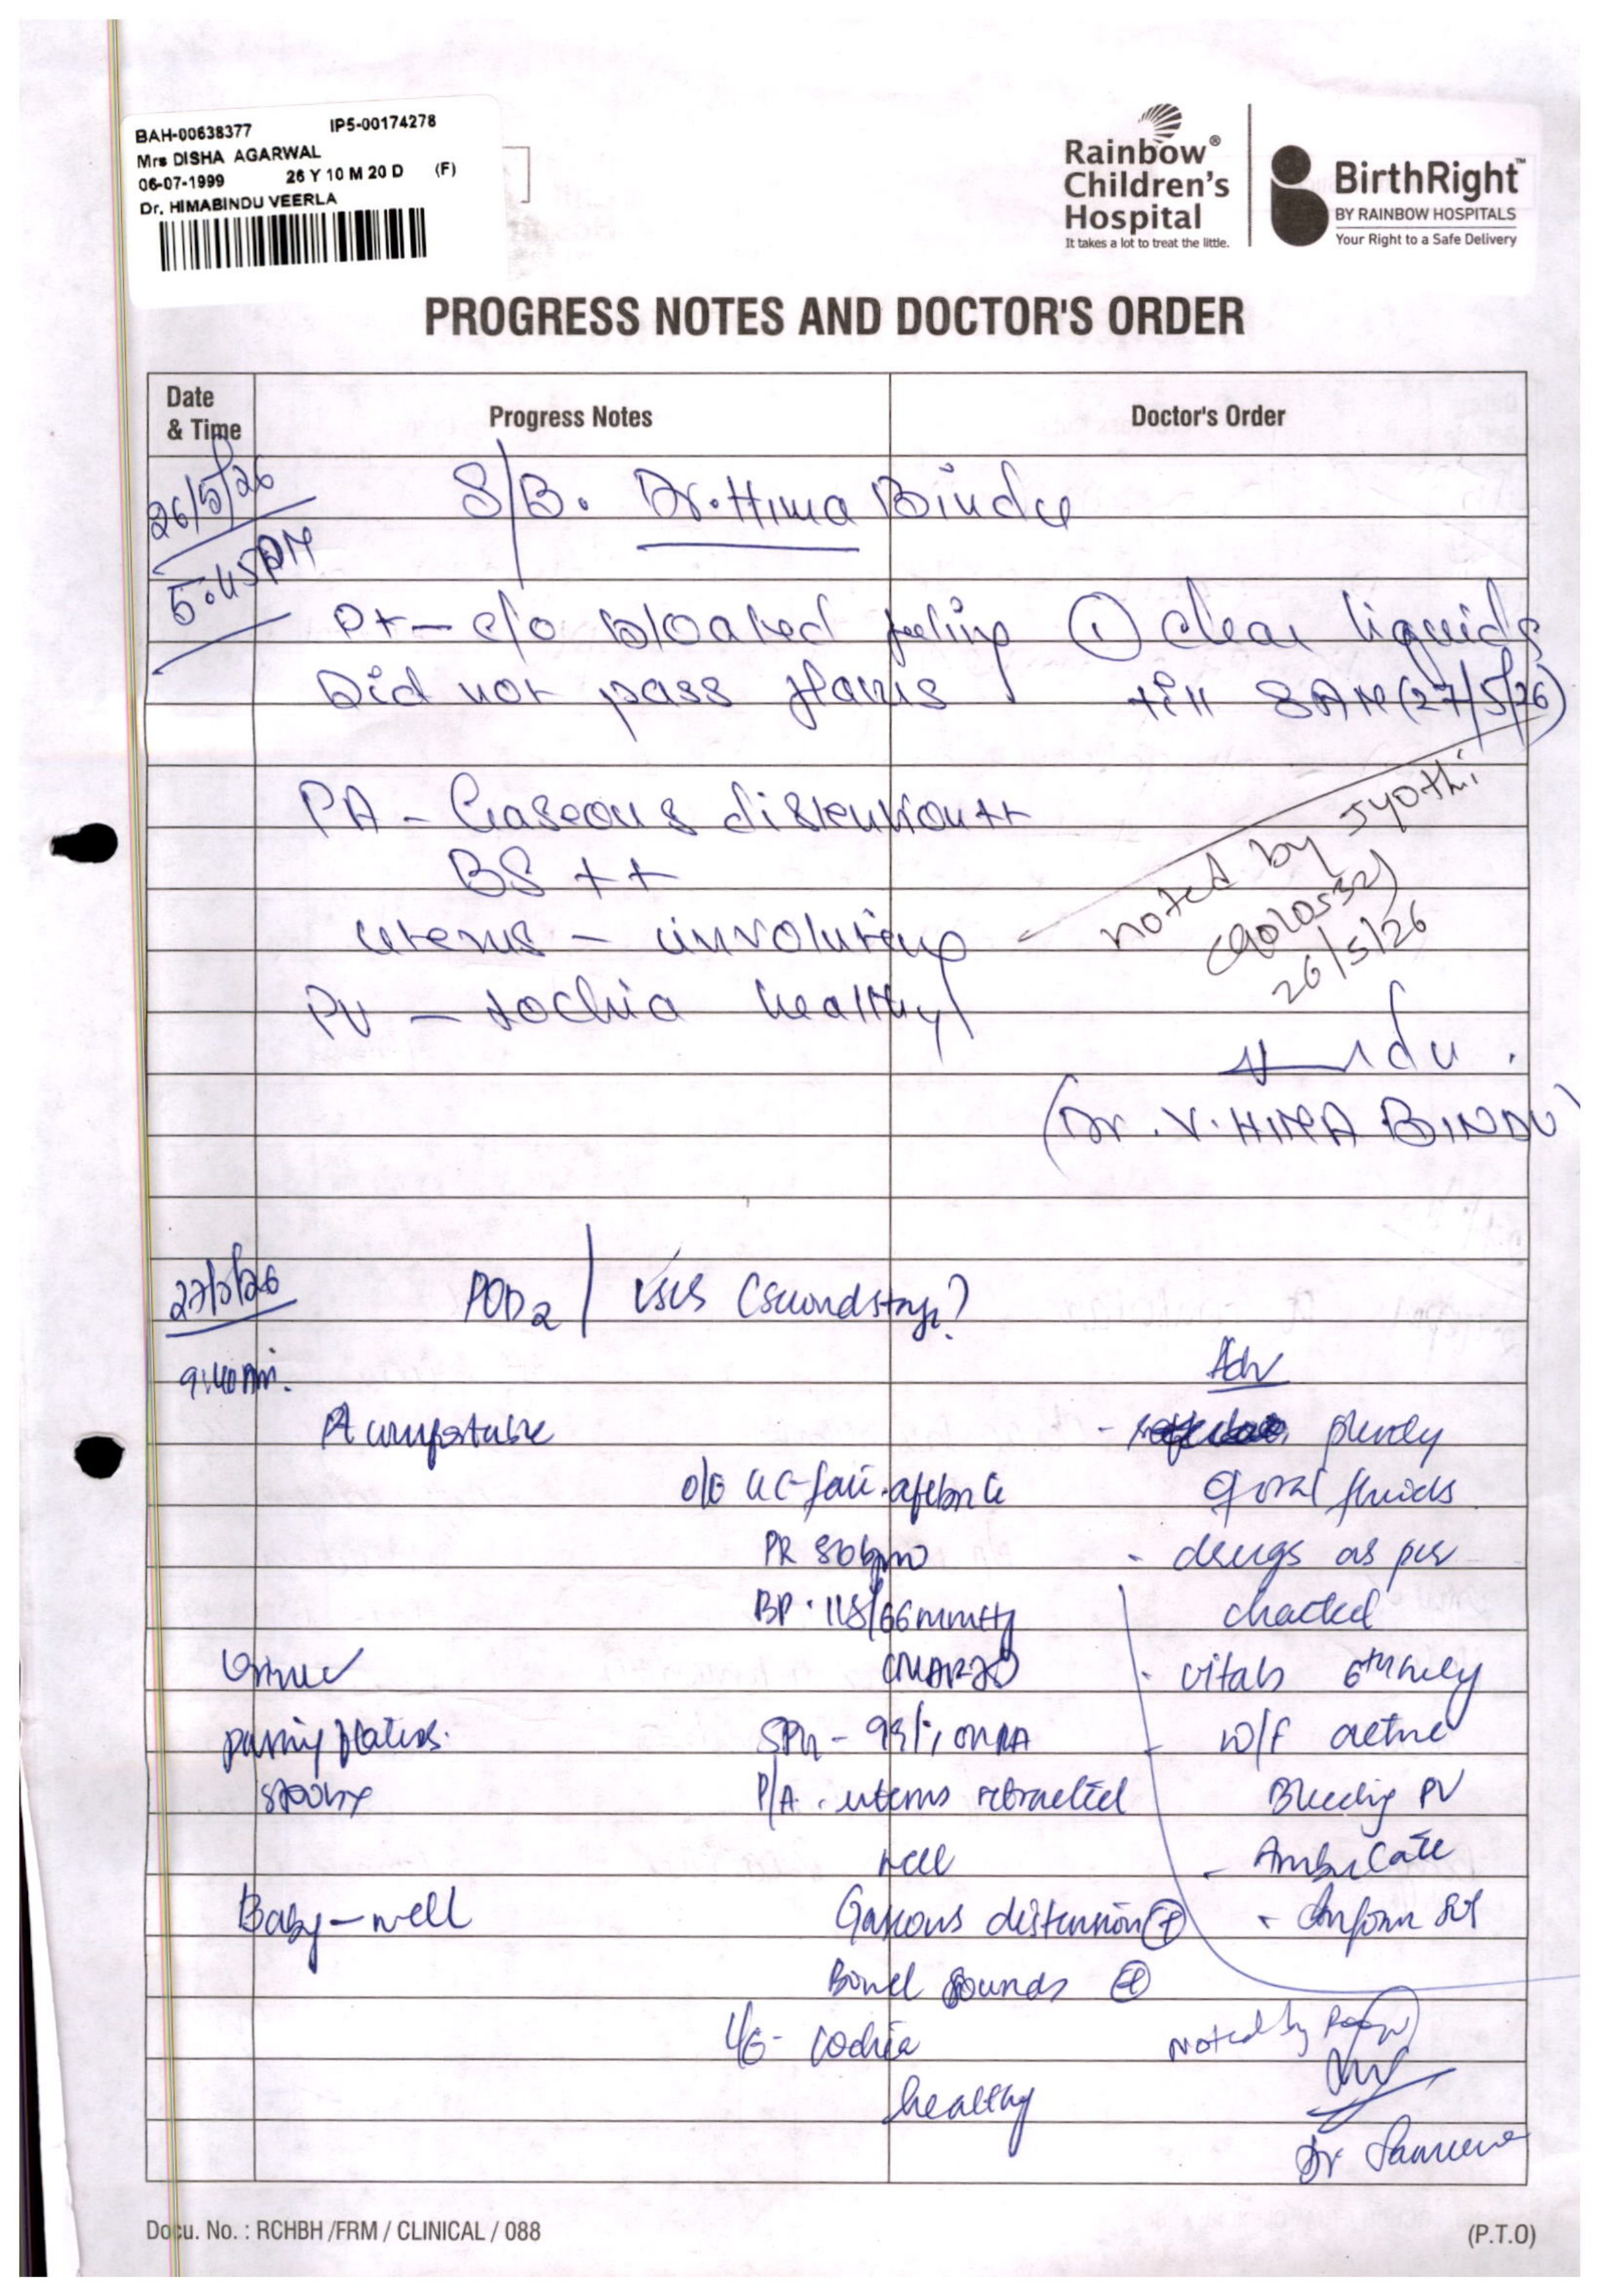 BAH-00638377 IP5-00174278
Mrs DISHA AGARWAL
06-07-1999 26 Y 10 M 20 D (F)
Dr. HIMABINDU VEERLA
Rainbow®
Children's
Hospital
It takes a lot to treat the little.
BirthRight™
BY RAINBOW HOSPITALS
Your Right to a Safe Delivery
PROGRESS NOTES AND DOCTOR'S ORDER
Date
& Time
Progress Notes
Doctor's Order
26/5/26
5:45PM
S/B. Dr. Hima Bindu
Pt - c/o bloated feeling
Did not pass flatus
① clear liquids
till 8AM (27/5/26)
PA - Gaseous distention ++
BS ++
uterus - involuting
PV - Lochia healthy
noted by Jyothi
26/5/26
(Dr. V. HIMA BINDU
27/5/26
9:40 Am.
POD2 / LSCS (second stage)
Pt comfortable
O/E GC-fair. afebrile
PR 80bpm
BP. 118/66mmHg
SPO2 - 99% on RA
P/A. uterus retracted
well
Gaseous distension ⊕
Bowel sounds ⊕
L/E - Lochia
healthy
Urine ✓
passing flatus.
stools x
Baby - well
Adv
- plenty
of oral fluids
- drugs as per
charted
- vitals 6th hrly
- W/F active
Bleeding PV
- Ambulate
- Inform SOS
noted by
Dr
Docu. No. : RCHBH /FRM / CLINICAL / 088
(P.T.O)